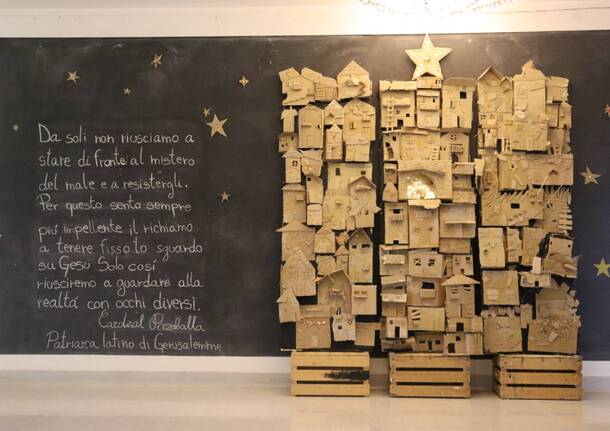 Da soli non riusciamo a
stare di fronte al mistero
del male e a resistergli.
Per questo sento sempre
più impellente il richiamo
a tenere fisso lo sguardo
su Gesù Solo così
riusciremo a guardare alla
realtà con occhi diversi.
Cardinal Pizzaballa
Patriarca latino di Gerusalemme